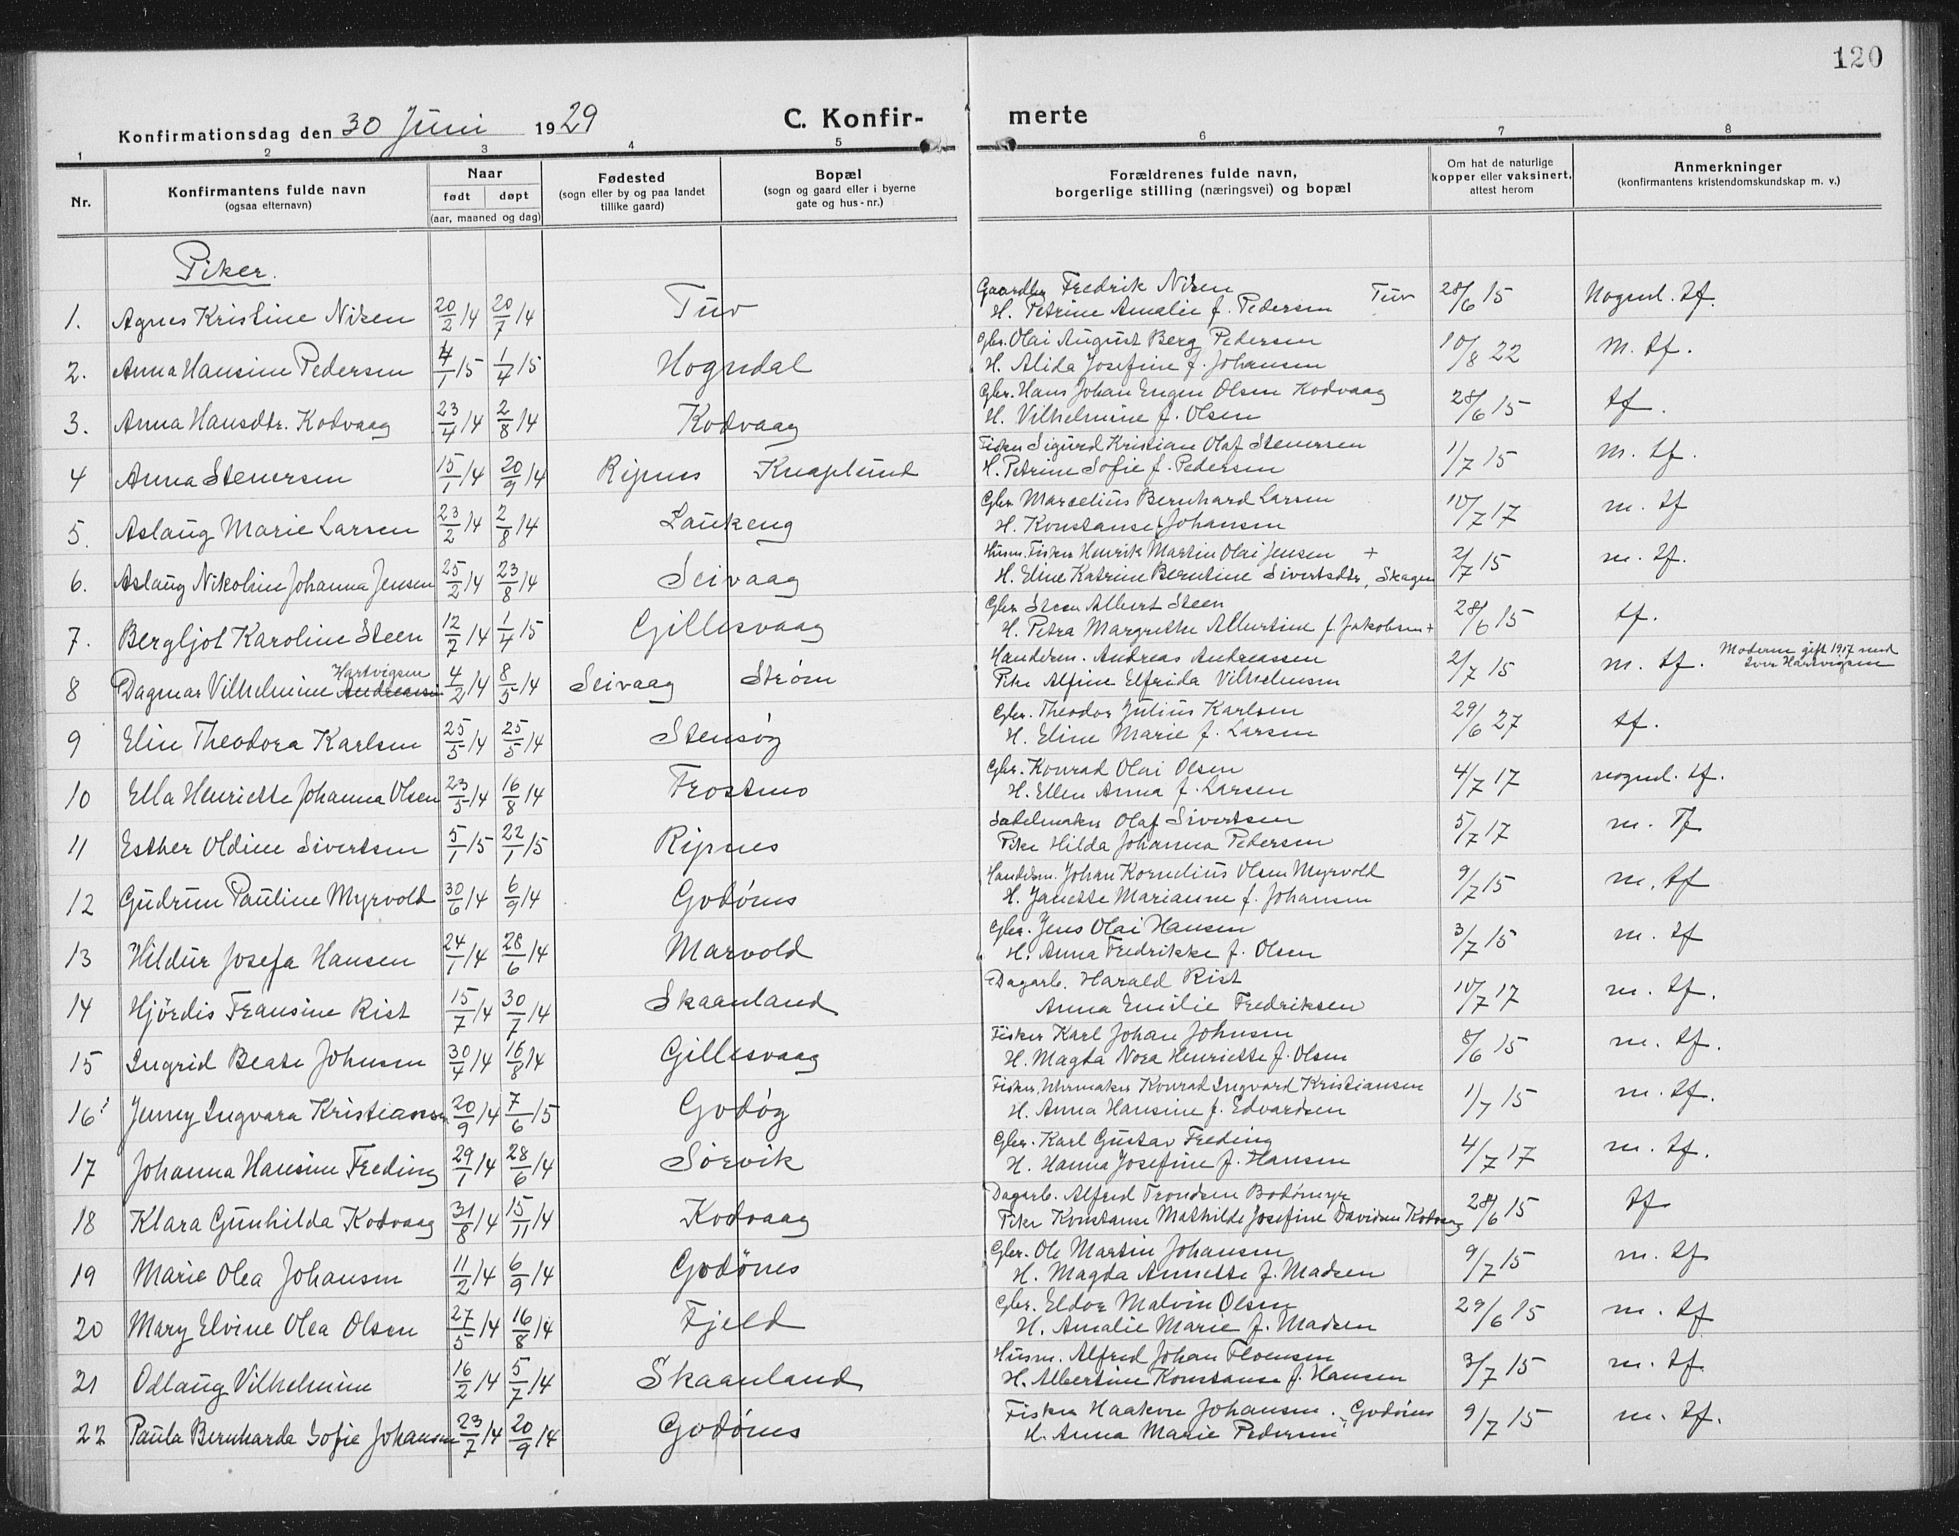 120
Konfirmationsdag den 30 Juni 1929 C. Konfir- merte
1 2 3 4 5 6 7 8
Nr. Konfirmantens fulde navn (ogsaa efternavn) Naar født døpt (aar, maaned og dag) Fødested (sogn eller by og paa landet tillike gaard) Bopæl (sogn og gaard eller i byerne gate og hus-nr.) Forældrenes fulde navn, borgerlige stilling (næringsvei) og bopæl Om hat de naturlige kopper eller vaksinert, attest herom Anmerkninger (konfirmantens kristendomskundskap m. v.)
Piker.
1. Agnes Kristine Nisen 20/2 14 20/7 14 Tuv Gaardbr Fredrik Nisen Tuv 28/6 15 Nognl. tf.
H. Petrine Amalie f. Pedersen
2. Anna Hansine Pedersen 4/1 15 1/4 15 Hogndal Gbr. Olai August Berg Pedersen 10/8 22 M. tf.
H. Alida Josefine f. Johansen
3. Anna Hansdtr. Kodvaag 23/4 14 2/8 14 Kodvaag Gbr. Hans Johan Engen Olsen Kodvaag 28/6 15 tf.
H. Vilhelmine f. Olsen
4 Anna Stenersen 15/1 14 20/9 14 Ripnes Knaplund Fisker Sigurd Kristian Olaf Stenersen 1/7 15 m. tf.
H. Petrine Sofie f. Pedersen
5. Aslaug Marie Larsen 23/2 14 2/8 14 Laukeng Gbr. Marcelius Bernhard Larsen 10/7 17 m. tf
H. Konstanse f. Johansen
6. Aslaug Nikoline Johanna Jensen 25/2 14 23/8 14 Seivaag Husm. Fisker Henrik Martin Olai Jensen + 2/7 15 m. tf.
H. Eline Katrine Berntine Sivertsdtr, Skagen
7. Bergljot Karoline Steen 12/7 14 1/4 15 Gillesvaag Gbr. Steen Albert Steen 28/6 15 tf.
H. Petra Margrethe Albertine f. Jakobsen +
8 Dagmar Vilhelmine Andreassen Hartvigsen 4/2 14 8/5 14 Seivaag Strøm Handelsm. Andreas Andreassen 2/7 15 m. tf. Moderen gift 1917 med Iver Hartvigsen
Pike Alfine Elfrida Vilhelmsen
9 Elin Theodora Karlsen 25/5 14 25/5 14 Stensøg Gbr. Theodor Julius Karlsen 29/6 27 tf.
H. Eline Marie f. Larsen
10 Ella Henriette Johanna Olsen 23/5 14 16/8 14 Frostmo Gbr. Konrad Olai Olsen 4/7 17 nognl. tf.
H. Ellen Anna f. Larsen
11 Esther Oldine Sivertsen 5/1 15 22/1 15 Ripnes Sadelmaker Olaf Sivertsen 5/7 17 m. Tf
Pike Hilda Johanna Pedersen
12 Gudrun Pauline Myrvold 30/6 14 6/9 14 Godønes Handelsm. Johan Kornelius Olsen Myrvold 9/7 15 m. tf
H. Janette Marianne f. Johansen
13 Hildur Josefa Hansen 24/1 14 28/6 14 Marvold Gbr. Jens Olai Hansen 3/7 15 m. tf
H. Anna Fredrikke f. Olsen
14 Hjørdis Fransine Rist 15/7 14 30/7 14 Skaanland Dagarb. Harald Rist 10/7 17 m. tf.
Anna Emilie Fredriksen
15 Ingrid Beate Johnsen 30/4 14 16/8 14 Gillesvaag Fisker Karl Johan Johnsen 8/6 15 m. tf.
H. Magda Nora Henriette f. Olsen
16 Jenny Ingvara Kristiansen 20/9 14 7/6 15 Godøg Fisker, Uhrmaker Konrad Ingvard Kristiansen 1/7 15 m. tf.
H. Anna Hansine f. Edvardsen
17 Johanna Hansine Freding 29/1 14 28/6 14 Sørvik Gbr. Karl Gustav Freding 4/7 17 m. tf.
H. Hanna Josefine f. Hansen
18 Klara Gunhilda Kodvaag 31/8 14 15/11 14 Kodvaag Dagarb. Alfred Trondsen Bodømyr 28/6 15 tf
Pike Konstanse Mathilde Josefine Davidsen Kodvaag
19 Marie Olea Johansen 11/2 14 6/9 14 Godønes Gbr. Ole Martin Johansen 9/7 15 m. tf
H. Magda Annette f. Madsen
20 Mary Elvine Olea Olsen 27/5 14 16/8 14 Fjeld Gbr. Eldor Malvin Olsen 29/6 15 m. tf
H. Amalie Marie f. Madsen
21 Odlaug Vilhelmine 16/2 14 5/7 14 Skaanland Husm. Alfred Johan 3/7 15 m. tf.
H. Albertine Konstanse f. Hansen
22 Paula Bernharda Sofie Johansen 23/7 14 20/9 14 Godønes Fisker Haakon Johansen. Godønes 9/7 15 m. tf.
H. Anna Marie Pedersen